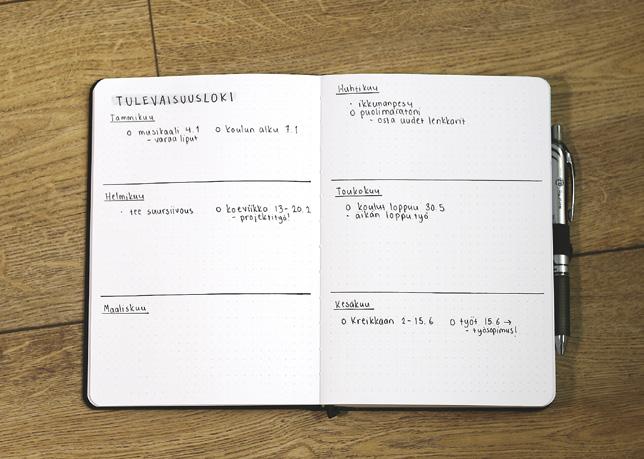 TULEVAISUUSLOKI
Tammikuu
o musikaali 4.1
- varaa liput
o koulun alku 7.1
Helmikuu
· tee suursiivous
o koeviikko 13-20.2
- projektityö!
Maaliskuu
Huhtikuu
· ikkunanpesu
o puolimaratoni
- osta uudet lenkkarit
Toukokuu
o koulut loppuu 30.5
- äikän lopputyö
Kesäkuu
o Kreikkaan 2-15.6
o työt 15.6 →
- työsopimus!